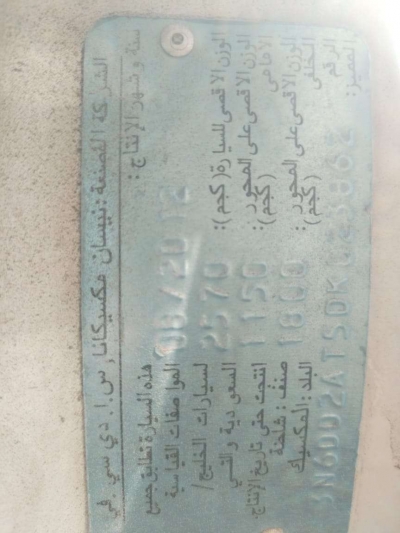 الشركة المصنعة: نيسان مكسيكانا, س.ا. دي سي. في
سنة و شهر الإنتاج: 08/2012
الوزن الاقصى للسيارة (كجم): 2570
الوزن الاقصى على المحور الامامي (كجم): 1150
الوزن الاقصى على المحور الخلفي (كجم): 1800
الرقم المميز:
هذه السيارة تطابق جميع
المواصفات القياسية
لسيارات الخليج/
السعودية والتي
انتجت حتى تاريخ الإنتاج.
صنف: شاحنة
البلد: المكسيك